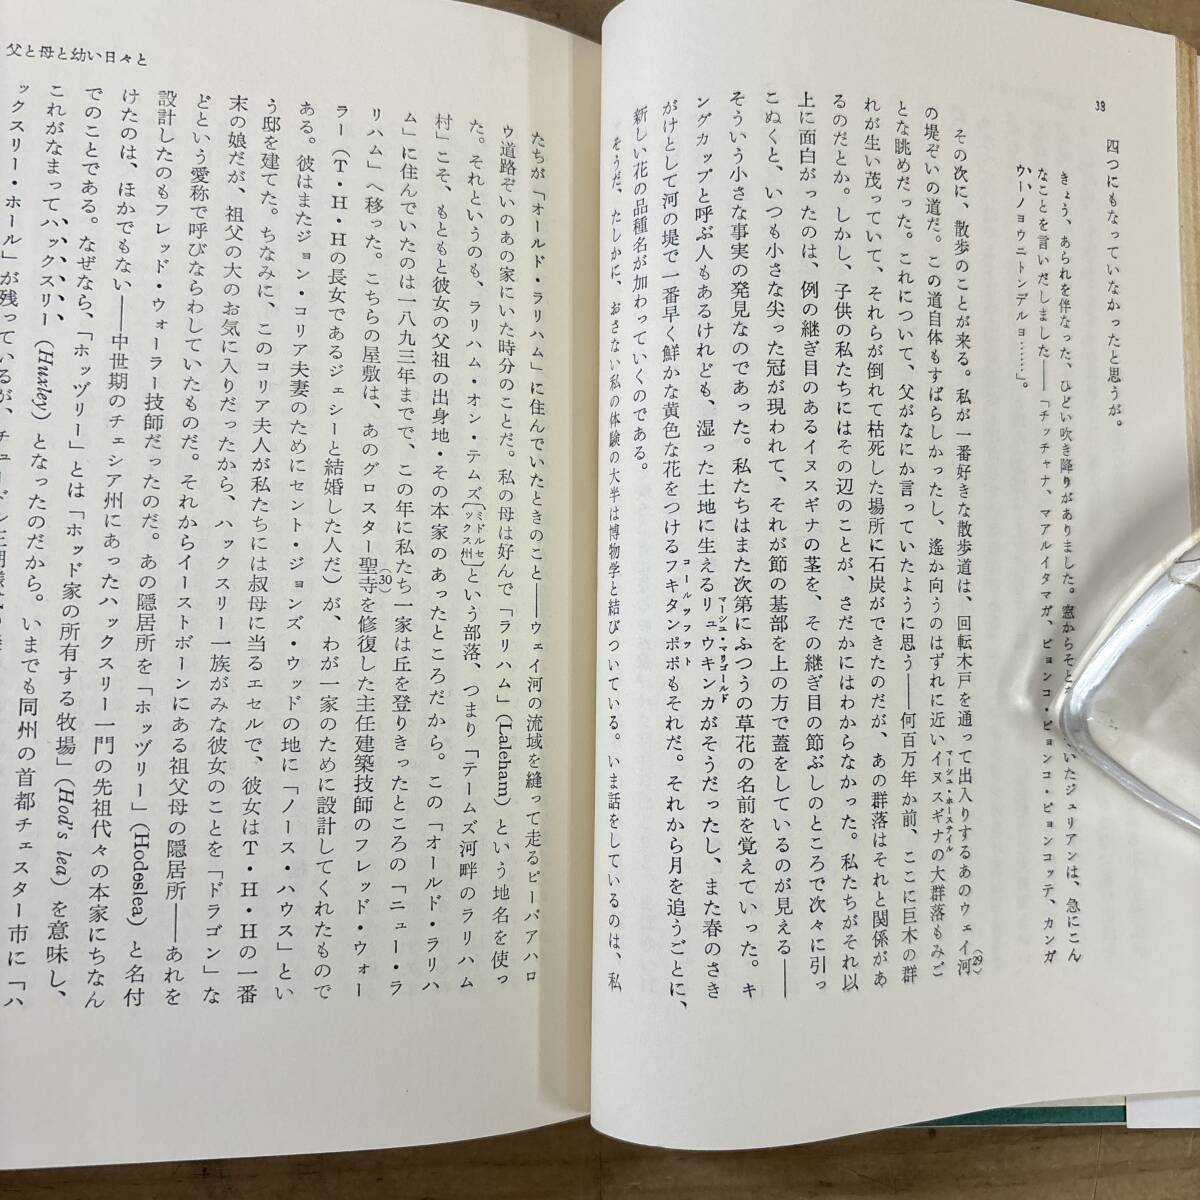 38
四つにもなっていなかったと思うが。
きょう、あられを伴なった、ひどい吹き降りがありました。窓からそと いたジュリアンは、急にこん
なことを言いだしました――「チッチャナ、マアルイタマガ、ピョンコ・ピョンコ・ピョンコッテ、カンガ
ウ・ノョウニトンデルョ……」。
その次に、散歩のことが来る。私が一番好きな散歩道は、回転木戸を通って出入りするあのウェイ河(29)
の堤ぞいの道だ。この道自体もすばらしかったし、遙か向うのはずれに近いイヌスギナ(マーシュ・ホーステイル)の大群落もみご
とな眺めだった。これについて、父がなにか言っていたように思う――何百万年か前、ここに巨木の群
れが生い茂っていて、それらが倒れて枯死した場所に石炭ができたのだが、あの群落はそれと関係があ
るのだとか。しかし、子供の私たちにはその辺のことが、さだかにはわからなかった。私たちがそれ以
上に面白がったのは、例の継ぎ目のあるイヌスギナの茎を、その継ぎ目の節ぶしのところで次々に引っ
こぬくと、いつも小さな尖った冠が現われて、それが節の基部を上の方で蓋をしているのが見える――
そういう小さな事実の発見なのであった。私たちはまた次第にふつうの草花の名前を覚えていった。キ
ングカップと呼ぶ人もあるけれども、湿った土地に生えるリュウキンカ(マーシュ・マリゴールド)がそうだったし、また春のさき
がけとして河の堤で一番早く鮮かな黄色な花をつけるフキタンポポ(コールツフット)もそれだ。それから月を追うごとに、
新しい花の品種名が加わっていくのである。
そうだ、たしかに、おさない私の体験の大半は博物学と結びついている。いま話をしているのは、私
父と母と幼い日々と
たちが「オールド・ラリハム」に住んでいたときのこと――ウェイ河の流域を縫って走るピーパアハロ
ウ道路ぞいのあの家にいた時分のことだ。私の母は好んで「ラリハム」(Laleham) という地名を使っ
た。それというのも、ラリハム・オン・テムズ〔ミドルセックス州〕という部落、つまり「テームズ河畔のラリハム
村」こそ、もともと彼女の父祖の出身地・その本家のあったところだから。この「オールド・ラリハ
ム」に住んでいたのは一八九三年までで、この年に私たち一家は丘を登りきったところの「ニュー・ラ
リハム」へ移った。こちらの屋敷は、あのグロスター聖寺(30)を修復した主任建築技師のフレッド・ウォー
ラー(T・H・Hの長女であるジェシーと結婚した人だ)が、わが一家のために設計してくれたもので
ある。彼はまたジョン・コリア夫妻のためにセント・ジョンズ・ウッドの地に「ノース・ハウス」とい
う邸を建てた。ちなみに、このコリア夫人が私たちには叔母に当るエセルで、彼女はT・H・Hの一番
末の娘だが、祖父の大のお気に入りだったから、ハックスリー一族がみな彼女のことを「ドラゴン」な
どという愛称で呼びならわしていたものだ。それからイーストボーンにある祖父母の隠居所――あれを
設計したのもフレッド・ウォーラー技師だったのだ。あの隠居所を「ホッヅリー」(Hodeslea) と名付
けたのは、ほかでもない――中世期のチェシア州にあったハックスリー一門の先祖代々の本家にちなん
でのことである。なぜなら、「ホッヅリー」とは「ホッド家の所有する牧場」(Hod's lea) を意味し、
これがなまってハックスリー (Huxley) となったのだから。いまでも同州の首都チェスター市に「ハ
ックスリー・ホール」が残っているが、